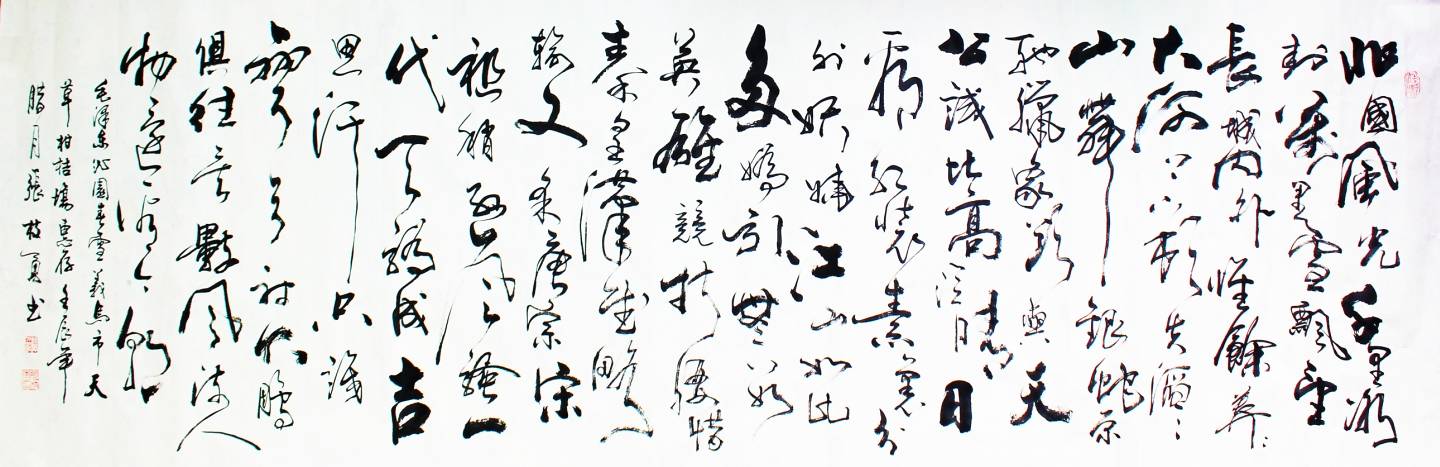 北國風光千里冰
封萬里雪飄望
長城內外惟餘莽ミ
大河上下頓失滔ミ
山舞銀蛇原
馳蠟象欲與天
公試比高須晴日
看紅裝素裹分
外妖嬈江山如此
多嬌引無數
英雄競折腰惜
秦皇漢武略
輸文采唐宗宋
祖稍遜風騷一
代天驕成吉
思汗只識
彎弓射大鵰
俱往矣數風流人
物還看今朝
毛澤東沁園春雪義烏市天
草柑桔場惠存壬辰年
腊月張枝書